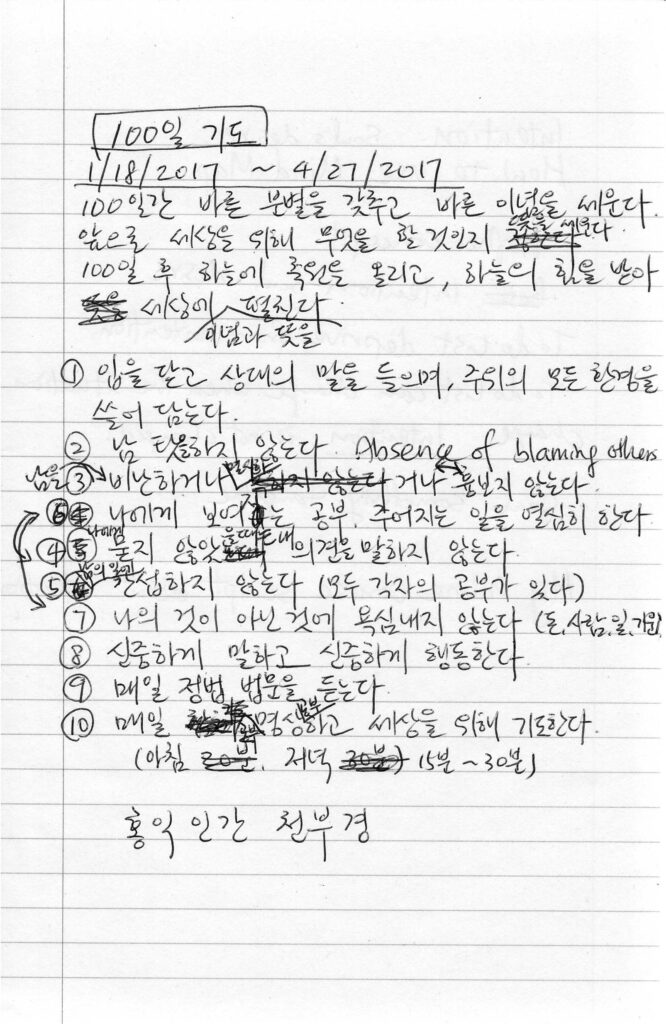 100일 기도
1/18/2017 ~ 4/27/2017
100일간 바른 분별을 갖추고 바른 이념을 세운다.
뜻을 세운다
앞으로 세상을 위해 무엇을 할 것인지
100일 후 하늘에 축원을 올리고, 하늘의 힘을 받아
세상에 펼친다.
이념과 뜻을
① 입을 닫고 상대의 말을 들으며, 주위의 모든 환경을
쓸어 담는다.
② 남 탓을하지 않는다. Absence of blaming others
남을 ③ 비난하거나 멸시하거나 흉보지 않는다.
⑥ 나에게 보여지는 공부, 주어지는 일을 열심히 한다.
④ 나에게 묻지 않았 내 의견을 말하지 않는다.
⑤ 남의 일에 간섭하지 않는다 (모두 각자의 공부가 있다)
⑦ 나의 것이 아닌 것에 욕심내지 않는다 (돈, 사람, 일, 기운)
⑧ 신중하게 말하고 신중하게 행동한다.
⑨ 매일 정법 법문을 듣는다.
⑩ 매일 명상공부하고 세상을 위해 기도한다.
(아침 20분, 저녁 30분) 15분 ~ 30분)
홍익인간 천부경